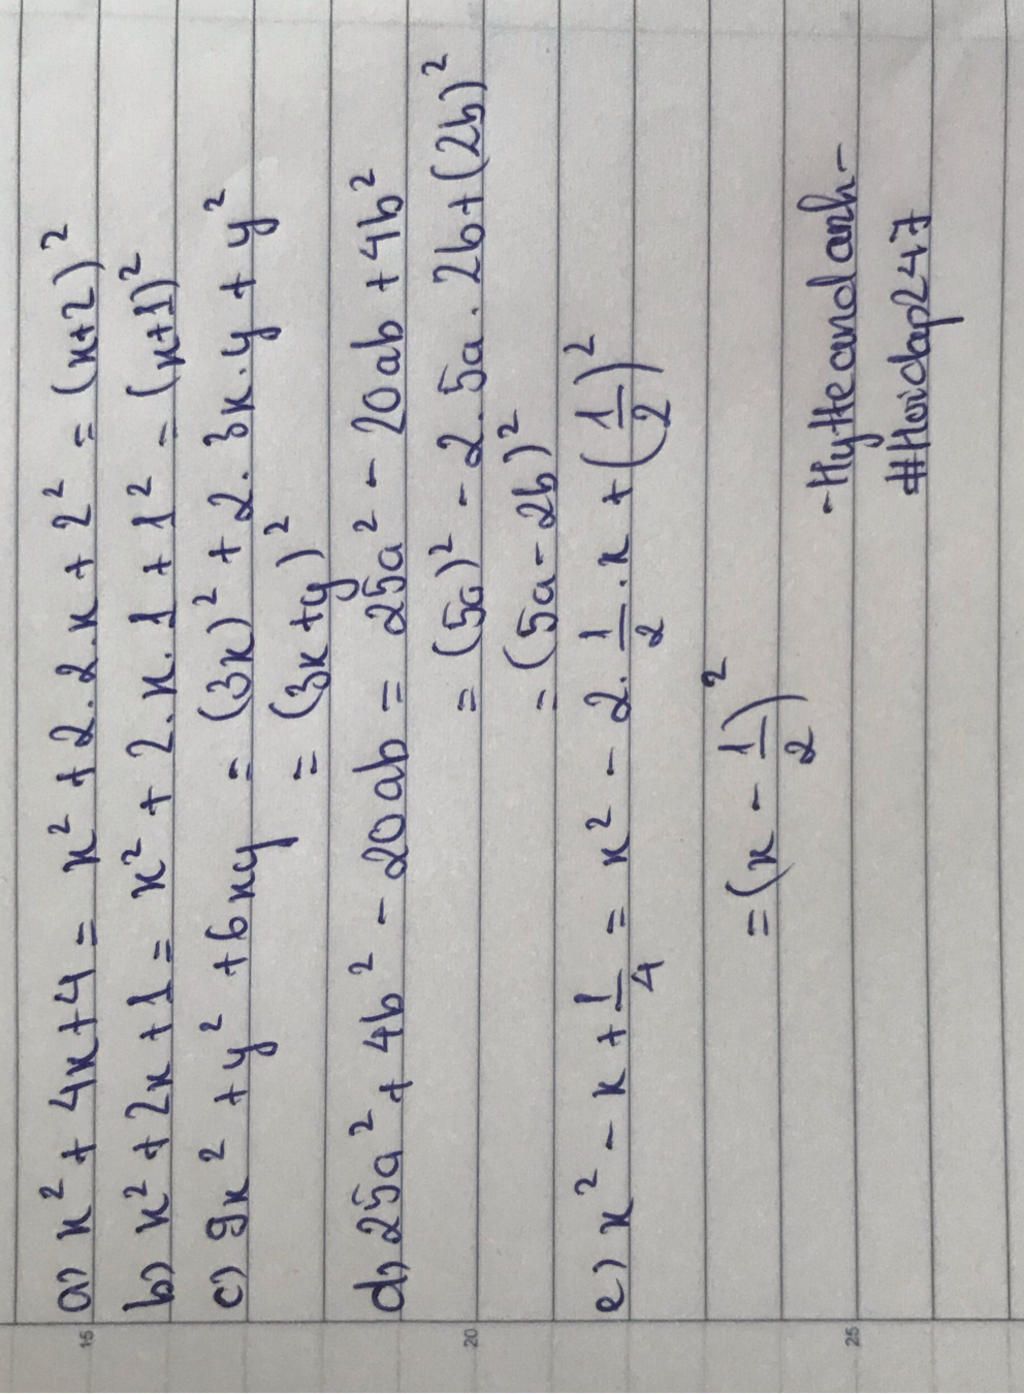 a) x² + 4x + 4 = x² + 2.2.x + 2² = (x+2)²
b) x² + 2x + 1 = x² + 2.x.1 + 1² = (x+1)²
c) 9x² + y² + 6xy = (3x)² + 2.3x.y + y²
= (3x+y)²
d) 25a² + 4b² - 20ab = 25a² - 20ab + 4b²
= (5a)² - 2.5a.2b + (2b)²
= (5a - 2b)²
e) x² - x + 1/4 = x² - 2.1/2.x + (1/2)²
= (x - 1/2)²
#Hoidap247
15
20
25